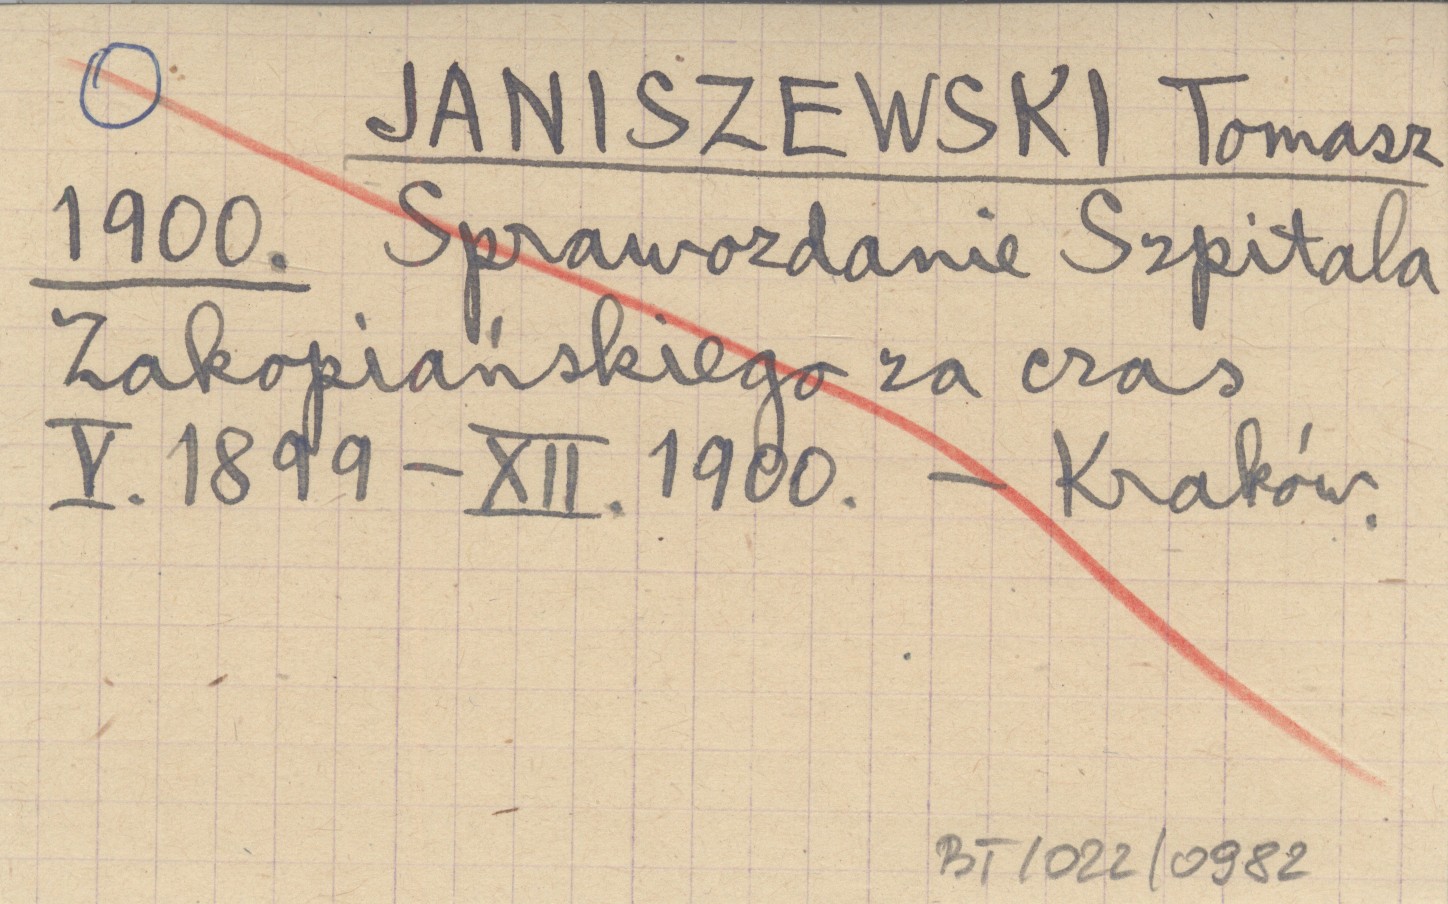 JANISZEWSKI Tomasz
1900. Sprawozdanie Szpitala
Zakopiańskiego za czas
V. 1899 – XII. 1900. – Kraków.
BT/022/0982